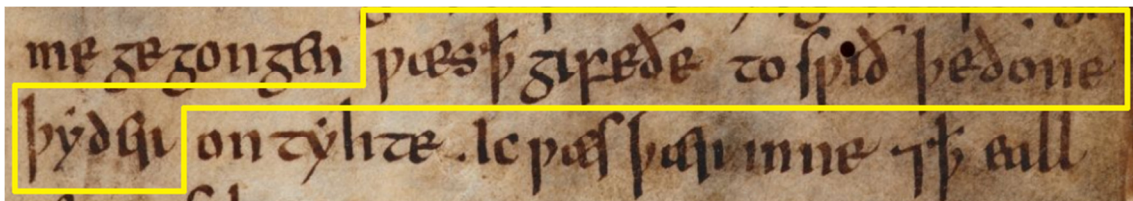 me ge gongen ƿæs ꝥ gifeðe to sƿið þe ðone
þẏder on tẏhte . Ic ƿæs þær inne ⁊ ꝥ eall